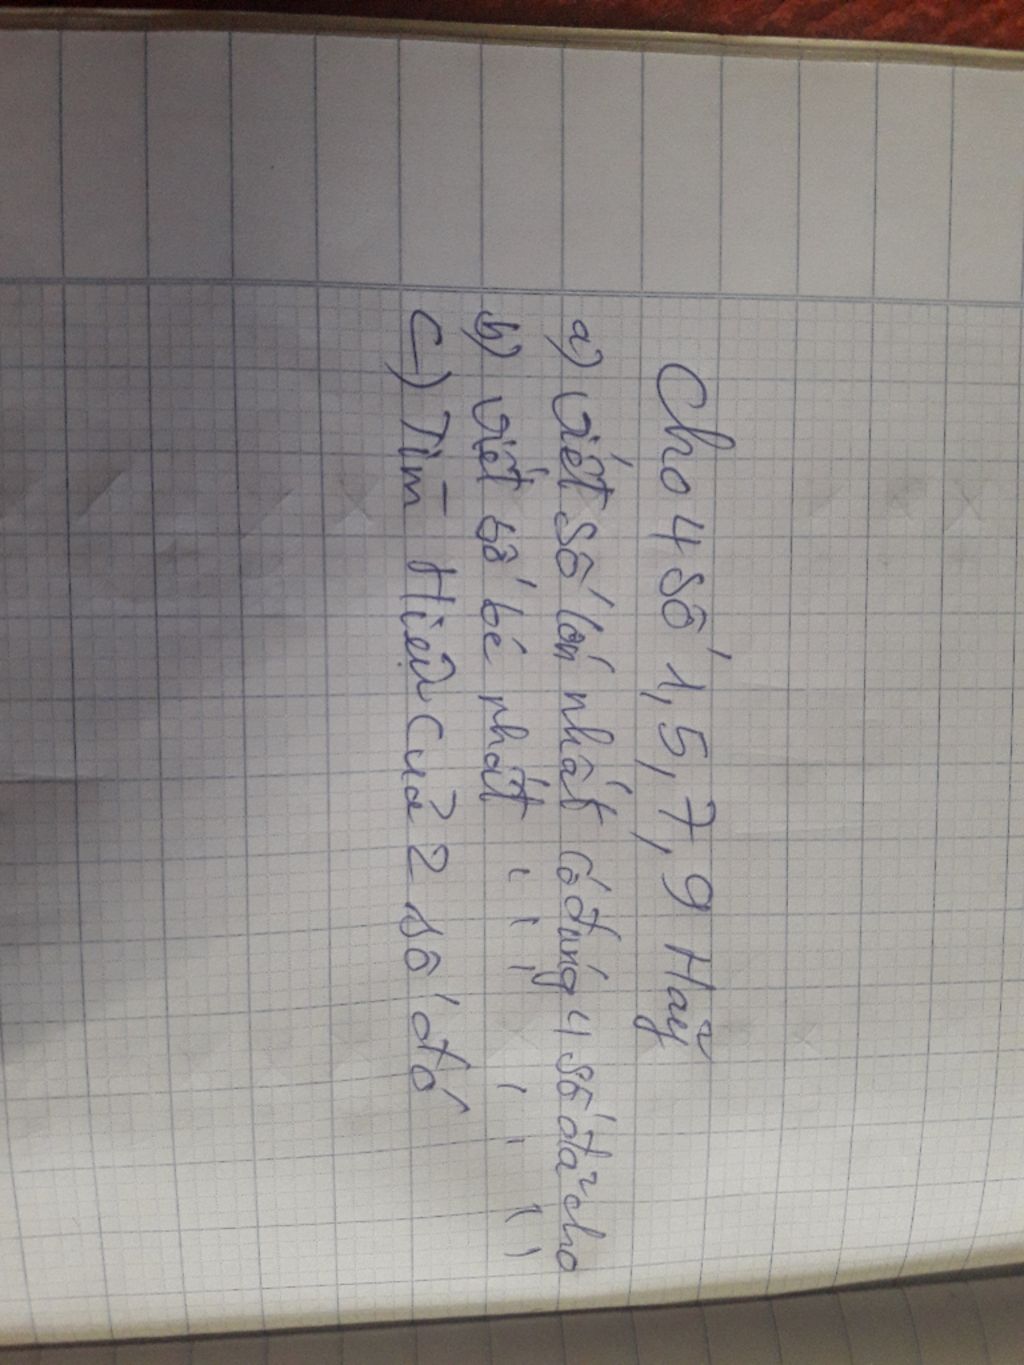 Cho 4 số 1, 5, 7, 9 Hãy
a) Viết số lớn nhất có đúng 4 số đã cho
b) Viết số bé nhất " " " " "
c) Tìm Hiệu của 2 số đó